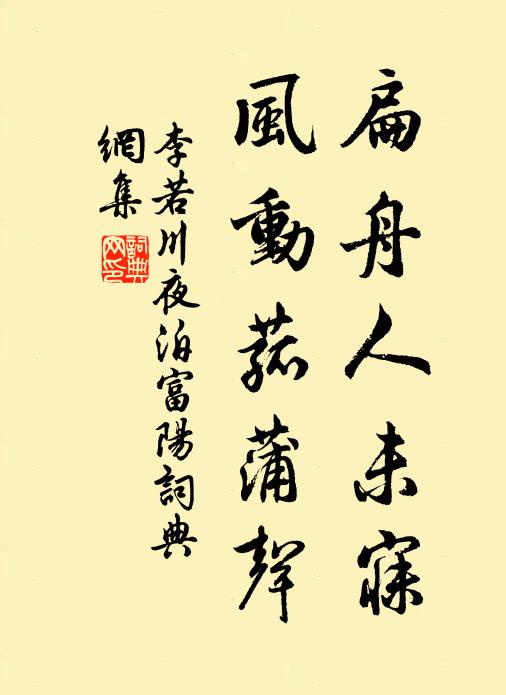 扁舟人未寐
風動菰蒲聲
李若川夜泊富陽詞典
網集
詞典
网印